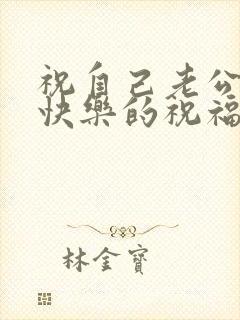 祝自己老公
快樂的祝福
林金寶